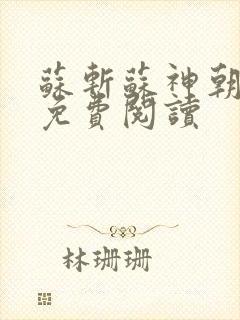 蘇斬蘇神朝
免費閱讀
林珊珊